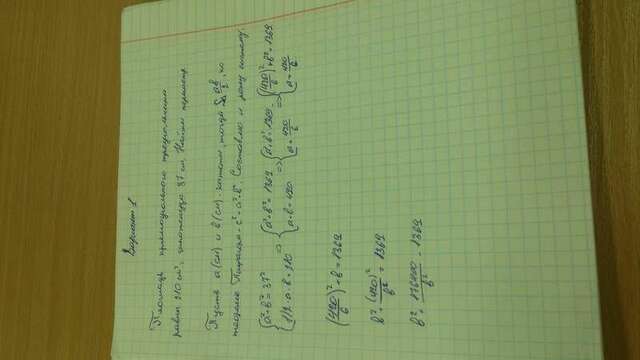 Вариант 1
Площадь прямоугольного треугольника
равна 210 см², гипотенуза 37 см. Найти периметр.
Пусть a (см) и b (см) - катеты, тогда S = ab/2, по
теореме Пифагора - c² = a² + b². Составлю и решу систему:
{a² + b² = 37² {a² + b² = 1369 {a² + b² = 1369 {(420/b)² + b² = 1369
{1/2 · a · b = 210 => {a · b = 420 => {a = 420/b => {a = 420/b
(420/b)² + b = 1369
b² + (420)²/b² = 1369
b² + 176400/b² - 1369